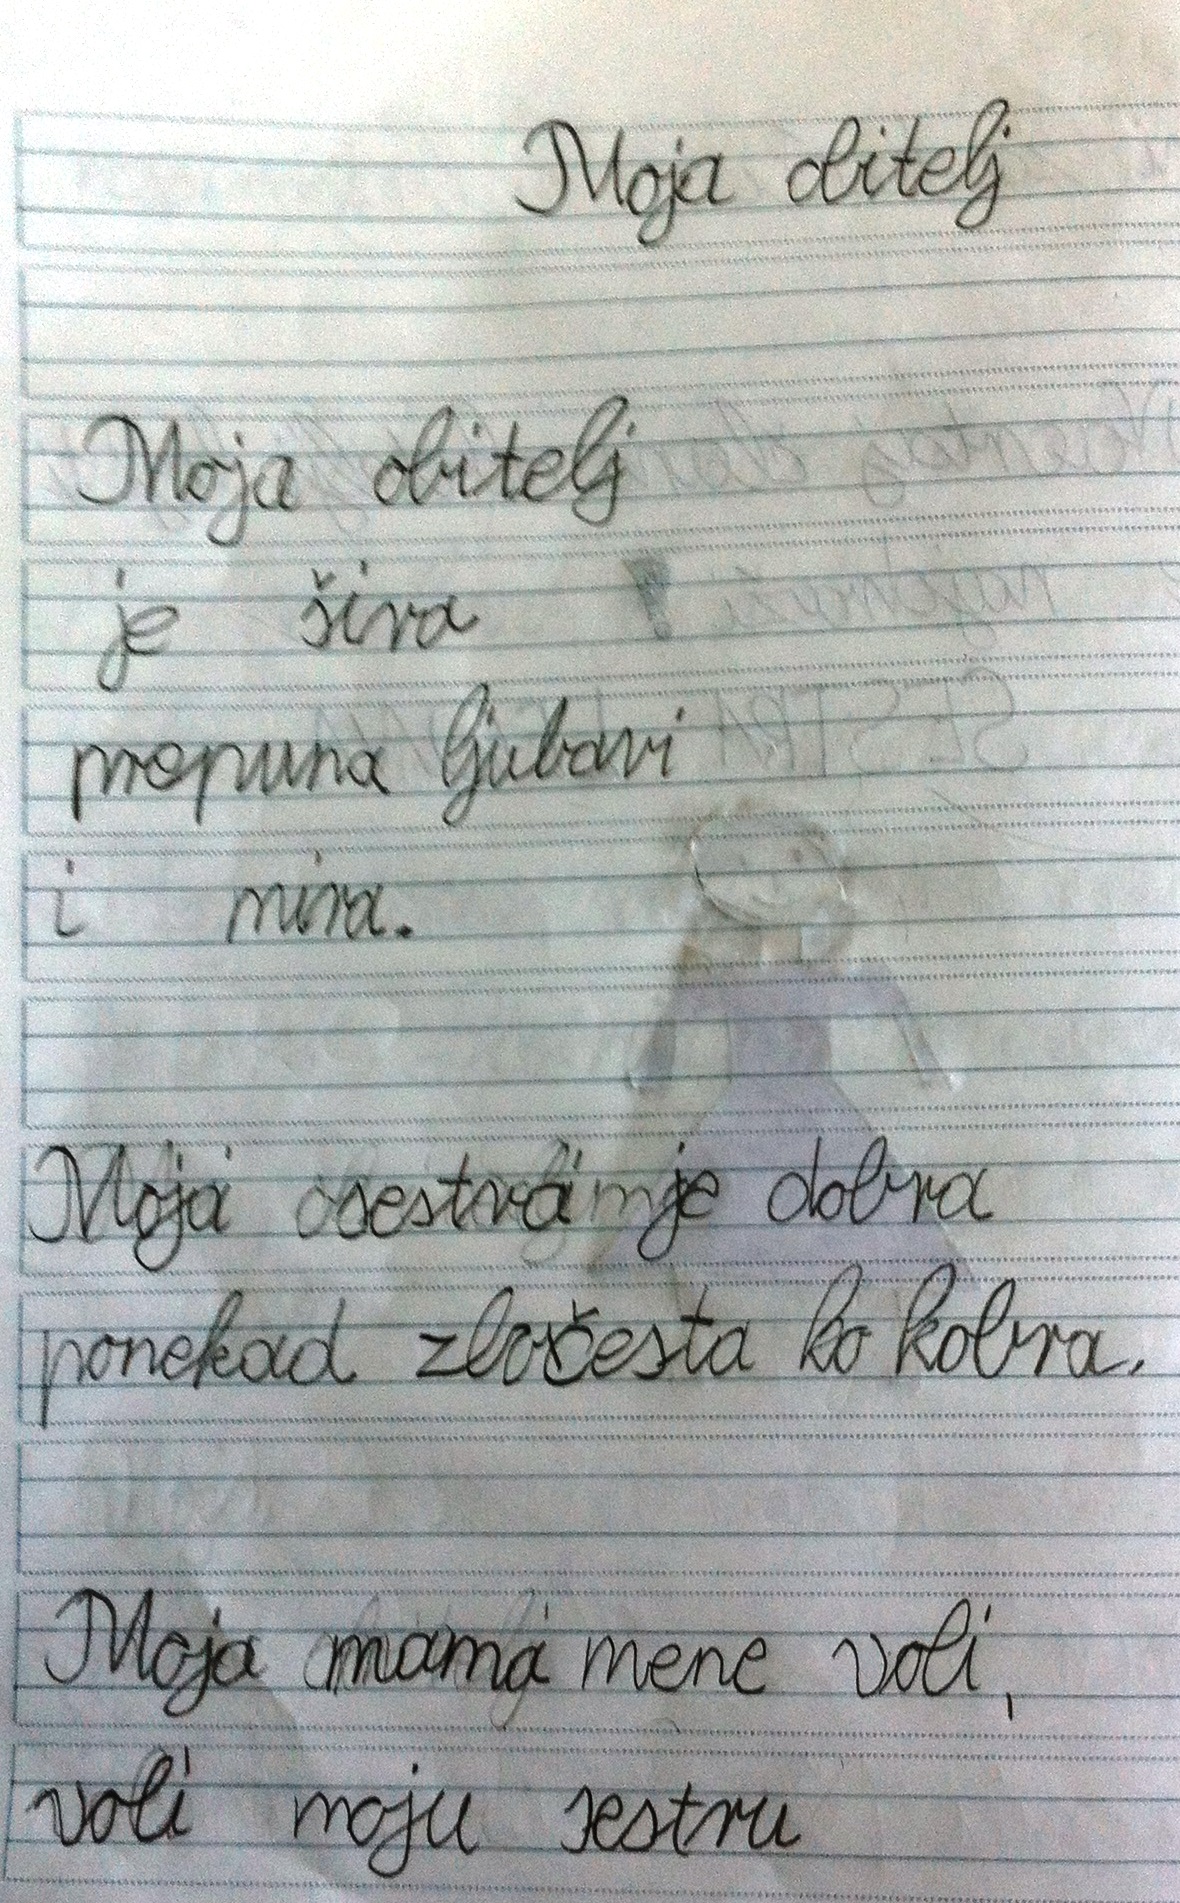 Moja obitelj
Moja obitelj
je šira
prepuna ljubavi
i mira.
Moja sestra je dobra
ponekad zločesta ko kobra.
Moja mama mene voli,
voli moju sestru